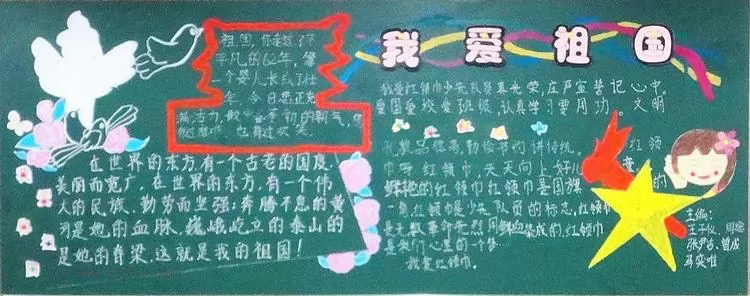 祖国,你走过了不
平凡的62年,像
一个婴儿长成了壮
年,今日您正充
满活力,
我爱祖国
我是红领巾少先队员真光荣,庄严宣誓记心中。
爱国爱校爱班级,认真学习要用功。文明
礼貌品德高,勤俭节约讲传统。红领
巾呀红领巾,天天向上好儿童。
鲜艳的红领巾红领巾是国旗的
一角,红领巾是少先队员的标志,红领巾
是无数革命先烈用鲜血染成的,红领巾
是我们心里的一个梦
我爱红领巾。
在世界的东方,有一个古老的国度,
美丽而宽广,在世界的东方,有一个伟
大的民族,勤劳而坚强:奔腾不息的黄
河是她的血脉,巍峨屹立的泰山的
是她的脊梁,这就是我的祖国!
主编: